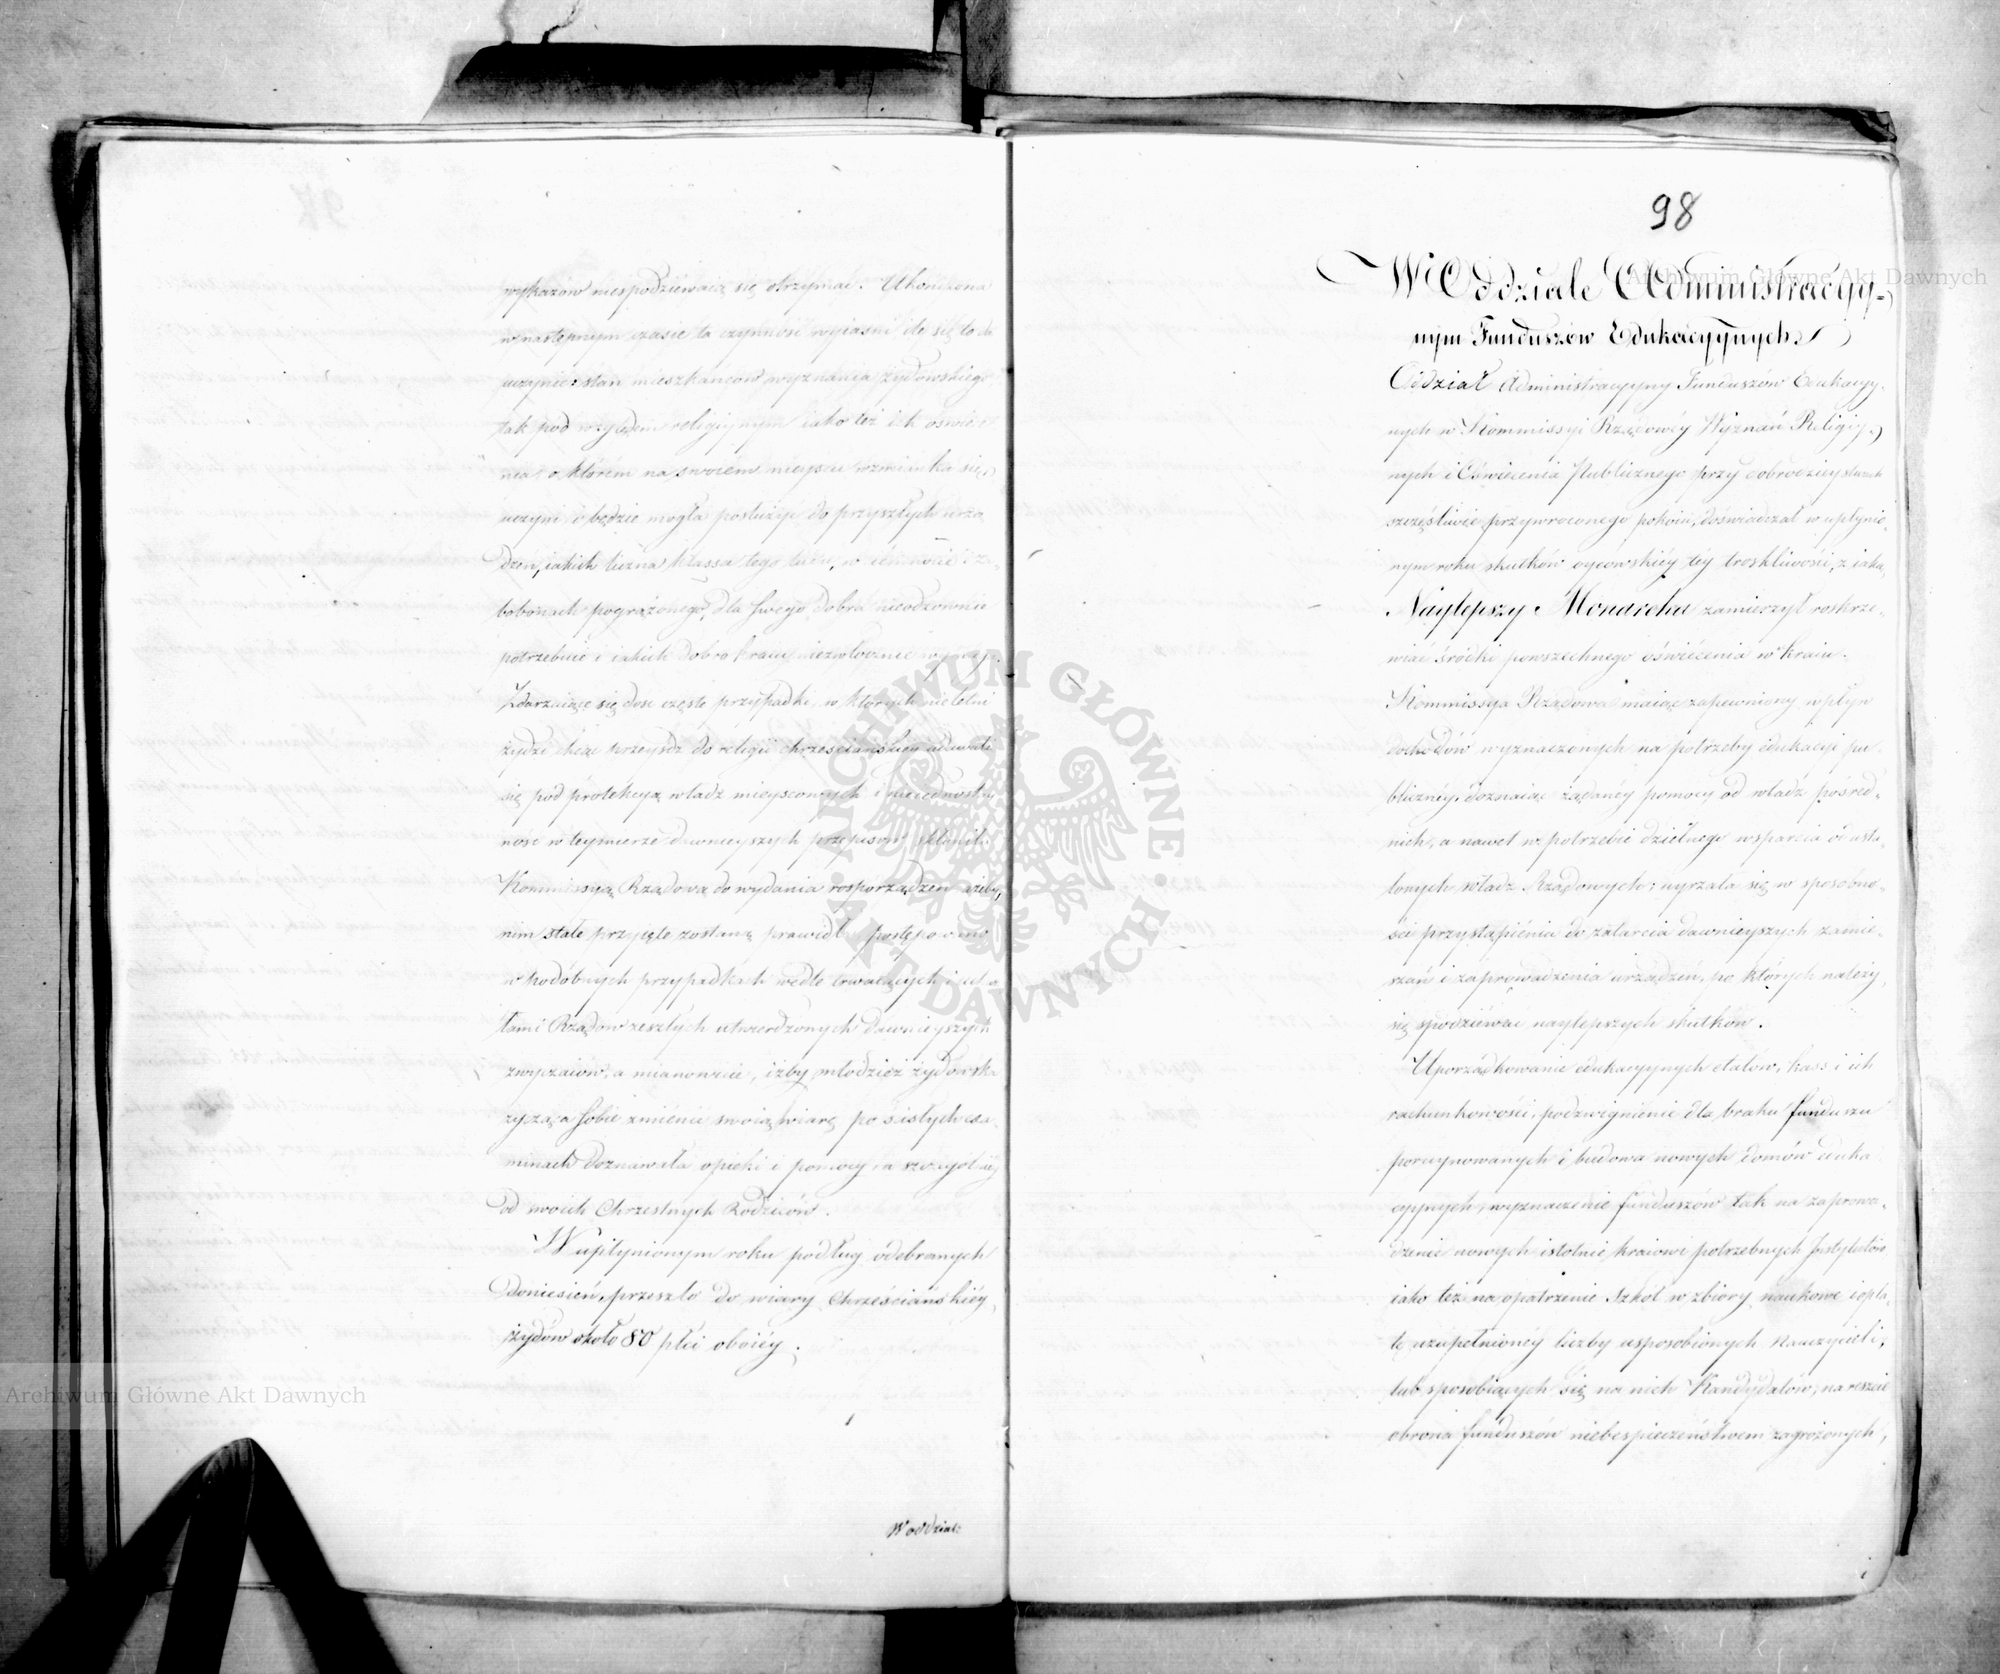 wykazów niespodziéwaią się otrzymać. Ukończona
w następnym czasie ta czynność wyiaśni ile się to da
uczynić: stan mieszkańców wyznania żydowskiego
tak pod względem religiynym iako też ich oświéce-
nia, o którém na swoiém mieyscu wzmianka się
uczyni i będzie mogła posłużyć do przyszłych urzą
dzeń, iakich liczna klassa tego ludu, w ciemnocie i za-
bobonach pogrążonego, dla swego dobra nieodzownie
potrzebuie i iakich dobro kraiu niezwłocznie wymaga.
Zdarzaiące się dosc częste przypadki, w których nieletni
żydzi chcąc przeyśdź do religii chrześciańskiey udawali
się pod protekcyą władz mieyscowych i nieiednostay
ność w teymierze dawnieyszych przepisów skłoniły
Kommissyą Rządową do wydania rosporządzeń ażeby,
nim stałe przyięte zostaną prawidła postępowano
w podobnych przypadkach wedle trwaiących i usta
łami Rządów zeszłych utwierdzonych dawnieyszych
zwyczaiów, a mianowicie, iżby młodzież żydowska
życząca sobie zmiénić swoią wiarę po scisłych exa-
minach doznawała opieki i pomocy a szczególniey
od swoich Chrzestnych Rodziców.
W upłynionym roku podług odebranych
doniesień, przeszło do wiary Chrześciańskiéy
żydów około 80 płci oboiéy.
W oddziale
98
W Oddziale Administracyy-
nym Funduszów Edukacyynych
Oddział Administracyyny Funduszów Edukacyy-
nych w Kommissyi Rządowéy Wyznań Religiy-
nych i Oświécenia Publicznego przy dobrodzieystwach
szczęśliwie przywróconego pokoiu, doświadczał w upłynio-
nym roku skutków oycowskiéy téy troskliwości, z iaką
Naylepszy Monarcha zamierzył roskrze-
wiać śródki powszechnego oświécenia w kraiu.
Kommissya Rządowa maiąc zapewniony wpływ
dochodów wyznaczonych na potrzeby edukacyi pu-
bliczney, doznaiąc żądanéy pomocy od władz pośred-
nich, a nawet w potrzebie dzielnego wsparcia od usta-
lonych władz Rządowych: uyrzała się w sposobno-
ści przystąpiénia do zatarcia dawnieyszych zamie-
szań i zaprowadzenia urządzeń, po których należy
się spodziéwać naylepszych skutków.
Uporządkowanie edukacyynych etatów, kass i ich
rachunkowości, podzwignienie dla braku funduszu
poruynowanych i budowa nowych domów eduka-
cyynych, wyznaczenie funduszów tak na zaprowa-
dzenie nowych istotnie kraiowi potrzebnych Instytutów
iako też na opatrzenie Szkół w zbiory naukowe i opła-
tę uzupełnionéy liczby usposobionych Nauczycieli,
lub sposobiących się na nich Kandydatów, nareszcie
obrona funduszów niebespieczeństwem zagrożonych,
Archiwum Główne Akt Dawnych
Archiwum Główne Akt Dawnych
ARCHIWUM GŁÓWNE · AKT DAWNYCH ·